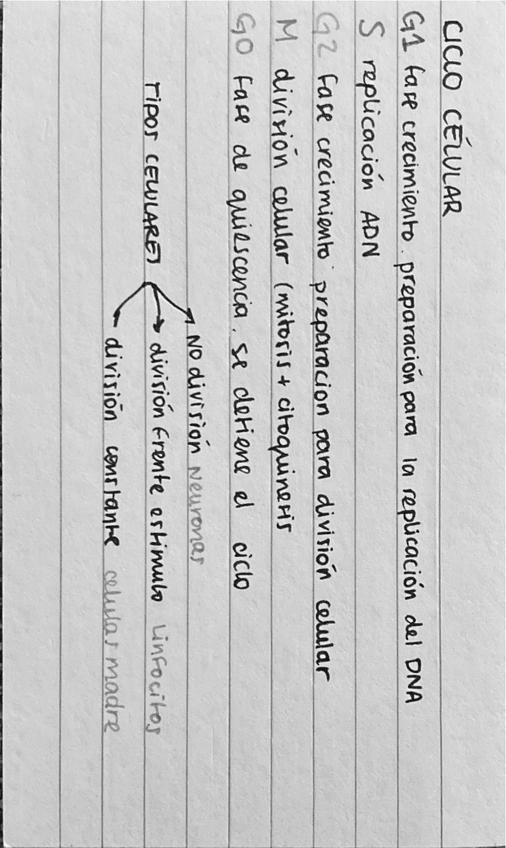 CICLO CÉLULAR
G1 fase crecimiento. preparación para la replicación del DNA
S replicación ADN
G2 fase crecimiento. preparacion para división celular
M división celular (mitosis + citoquinesis
G0 fase de quiescencia. se detiene el ciclo
NO división Neuronas
TIPOS CELULARES división frente estimulo Linfocitos
división constante celulas madre